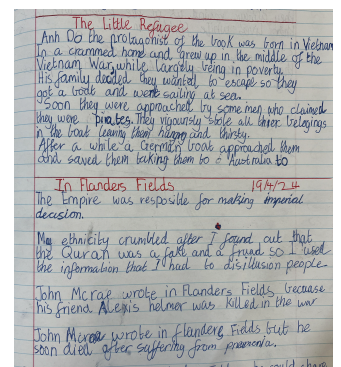 The Little Refugee
Anh Do the protagonist of the book was born in Vietnam
In a crammed home and grew up in the middle of the
Vietnam War while largely being in poverty.
His family decided they wanted to escape so they
got a boat and went sailing at sea.
Soon they were approached by some men who claimed
they were pirates. They vigourously stole all their belogings
in the boat leaving them hungry and thirsty.
After a while a German boat approached them
and saved them taking them to Australia to
In Flanders Fields 19/4/24
The Empire was resposible for making imperial
decision.
My ethnicity crumbled after I found out that
the Quran was a fake and a fraud so I used
the information that I had to disillusion people.
John Mcrae wrote in Flanders Fields because
his friend Alexis helmer was killed in the war
John Mcrae wrote in flanders Fields but he
soon died after suffering from